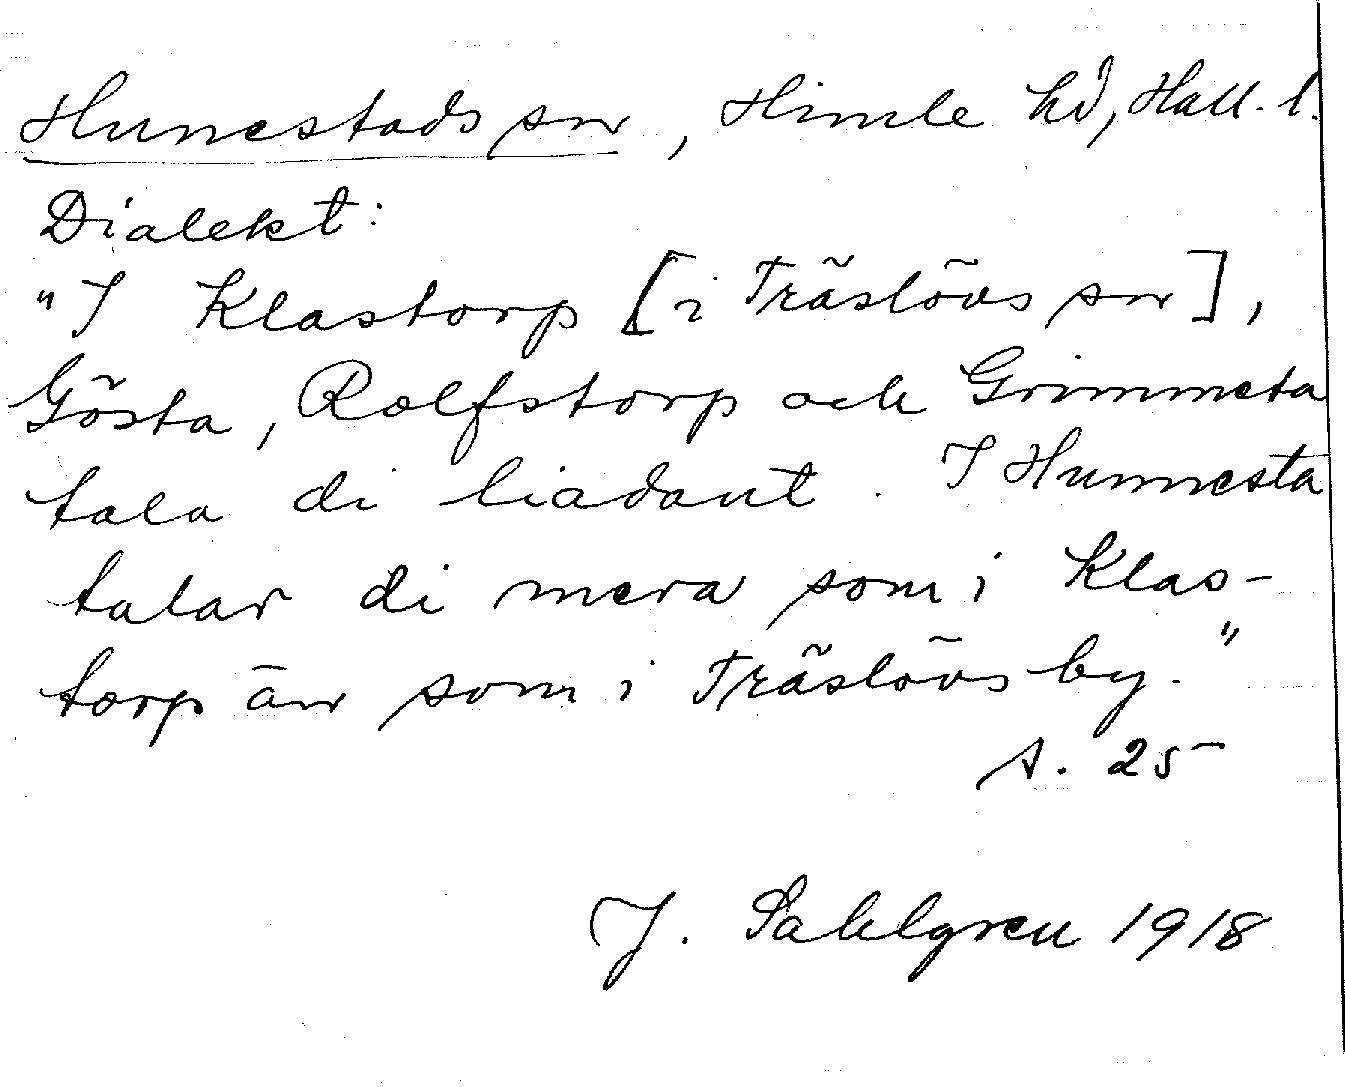 Hunestads sn, Himle hd, Hall. l.
Dialekt:
"I Klastorp [i Träslövs sn],
Gösta, Rolfstorp och Grimmeta
tala di liadant. I Hunnesta
talar di mera som i Klas-
torp än som i Träslövs by."
s. 25
J. Sahlgren 1918